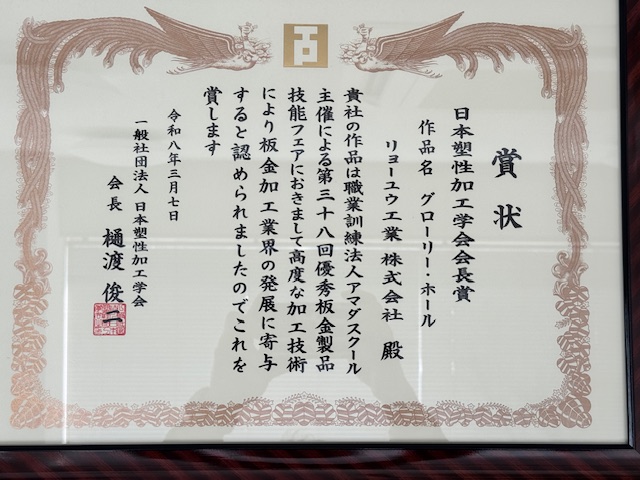 賞状
日本塑性加工学会会長賞
作品名 グローリー・ホール
リョーユウ工業 株式会社 殿
貴社の作品は職業訓練法人アマダスクール
主催による第三十八回優秀板金製品
技能フェアにおきまして高度な加工技術
により板金加工業界の発展に寄与
すると認められましたのでこれを
賞します
令和八年三月七日
一般社団法人 日本塑性加工学会
会長 樋渡 俊二